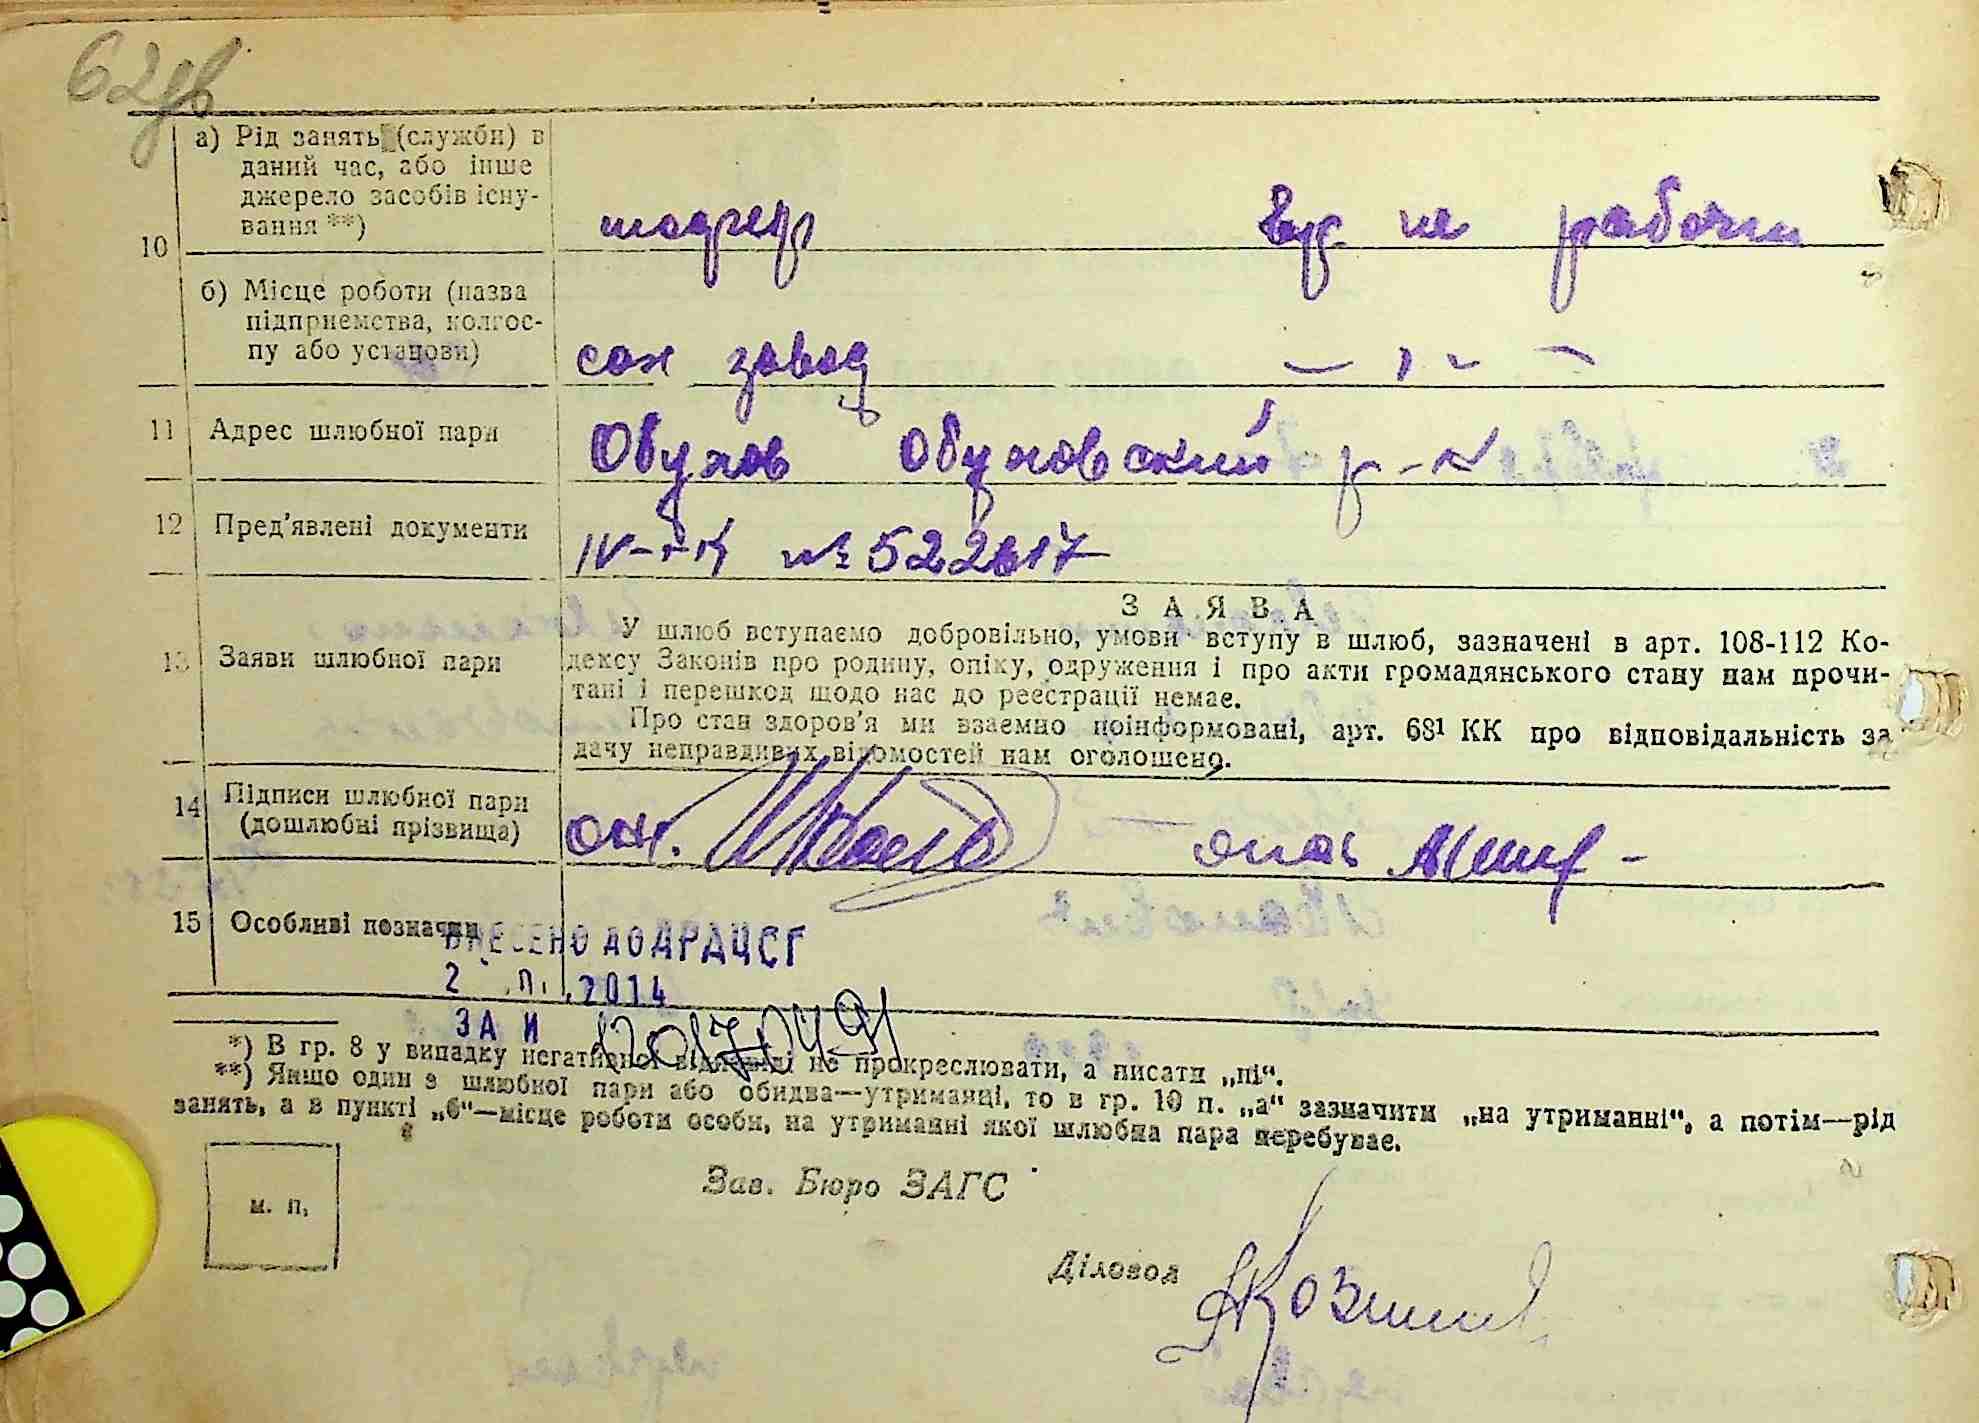 62зв
а) Рід занять (служби) в
даний час, або інше
джерело засобів існу-
вання **)
10
не рабочи
б) Місце роботи (назва
підприємства, колгос-
пу або установи)
завод
11 Адрес шлюбної пари
Обухов Обуховский р-н
12 Пред'явлені документи
№ 522617
ЗАЯВА
13 Заяви шлюбної пари
У шлюб вступаємо добровільно, умови вступу в шлюб, зазначені в арт. 108-112 Ко-
дексу Законів про родину, опіку, одруження і про акти громадянського стану нам прочи-
тані і перешкод щодо нас до реєстрації немає.
Про стан здоров'я ми взаємно поінформовані, арт. 68¹ КК про відповідальність за
дачу неправдивих відомостей нам оголошено.
14 Підписи шлюбної пари
(дошлюбні прізвища)
он.
она
15 Особливі позначки
ВНЕСЕНО ДО ДРАЦСГ
2 .П. .2014
ЗА И
*) В гр. 8 у випадку негативної відповіді не прокреслювати, а писати „ні“.
**) Якщо один з шлюбної пари або обидва—утриманці, то в гр. 10 п. „а“ зазначити „на утриманні“, а потім—рід
занять, а в пункті „б“—місце роботи особи, на утриманні якої шлюбна пара перебуває.
м. п.
Зав. Бюро ЗАГС
Діловод